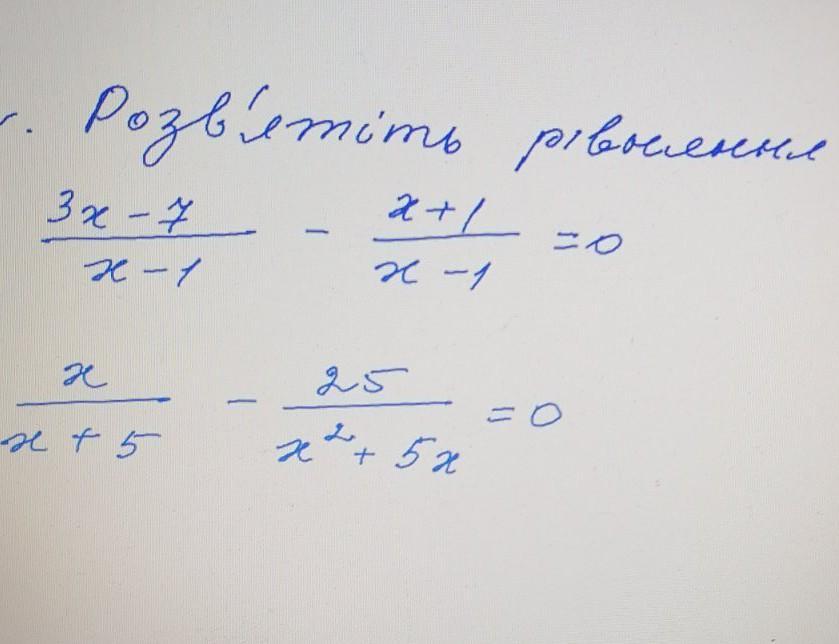 . Розв'яжіть рівняння
3x - 7 / x - 1 - x + 1 / x - 1 = 0
x / x + 5 - 25 / x² + 5x = 0